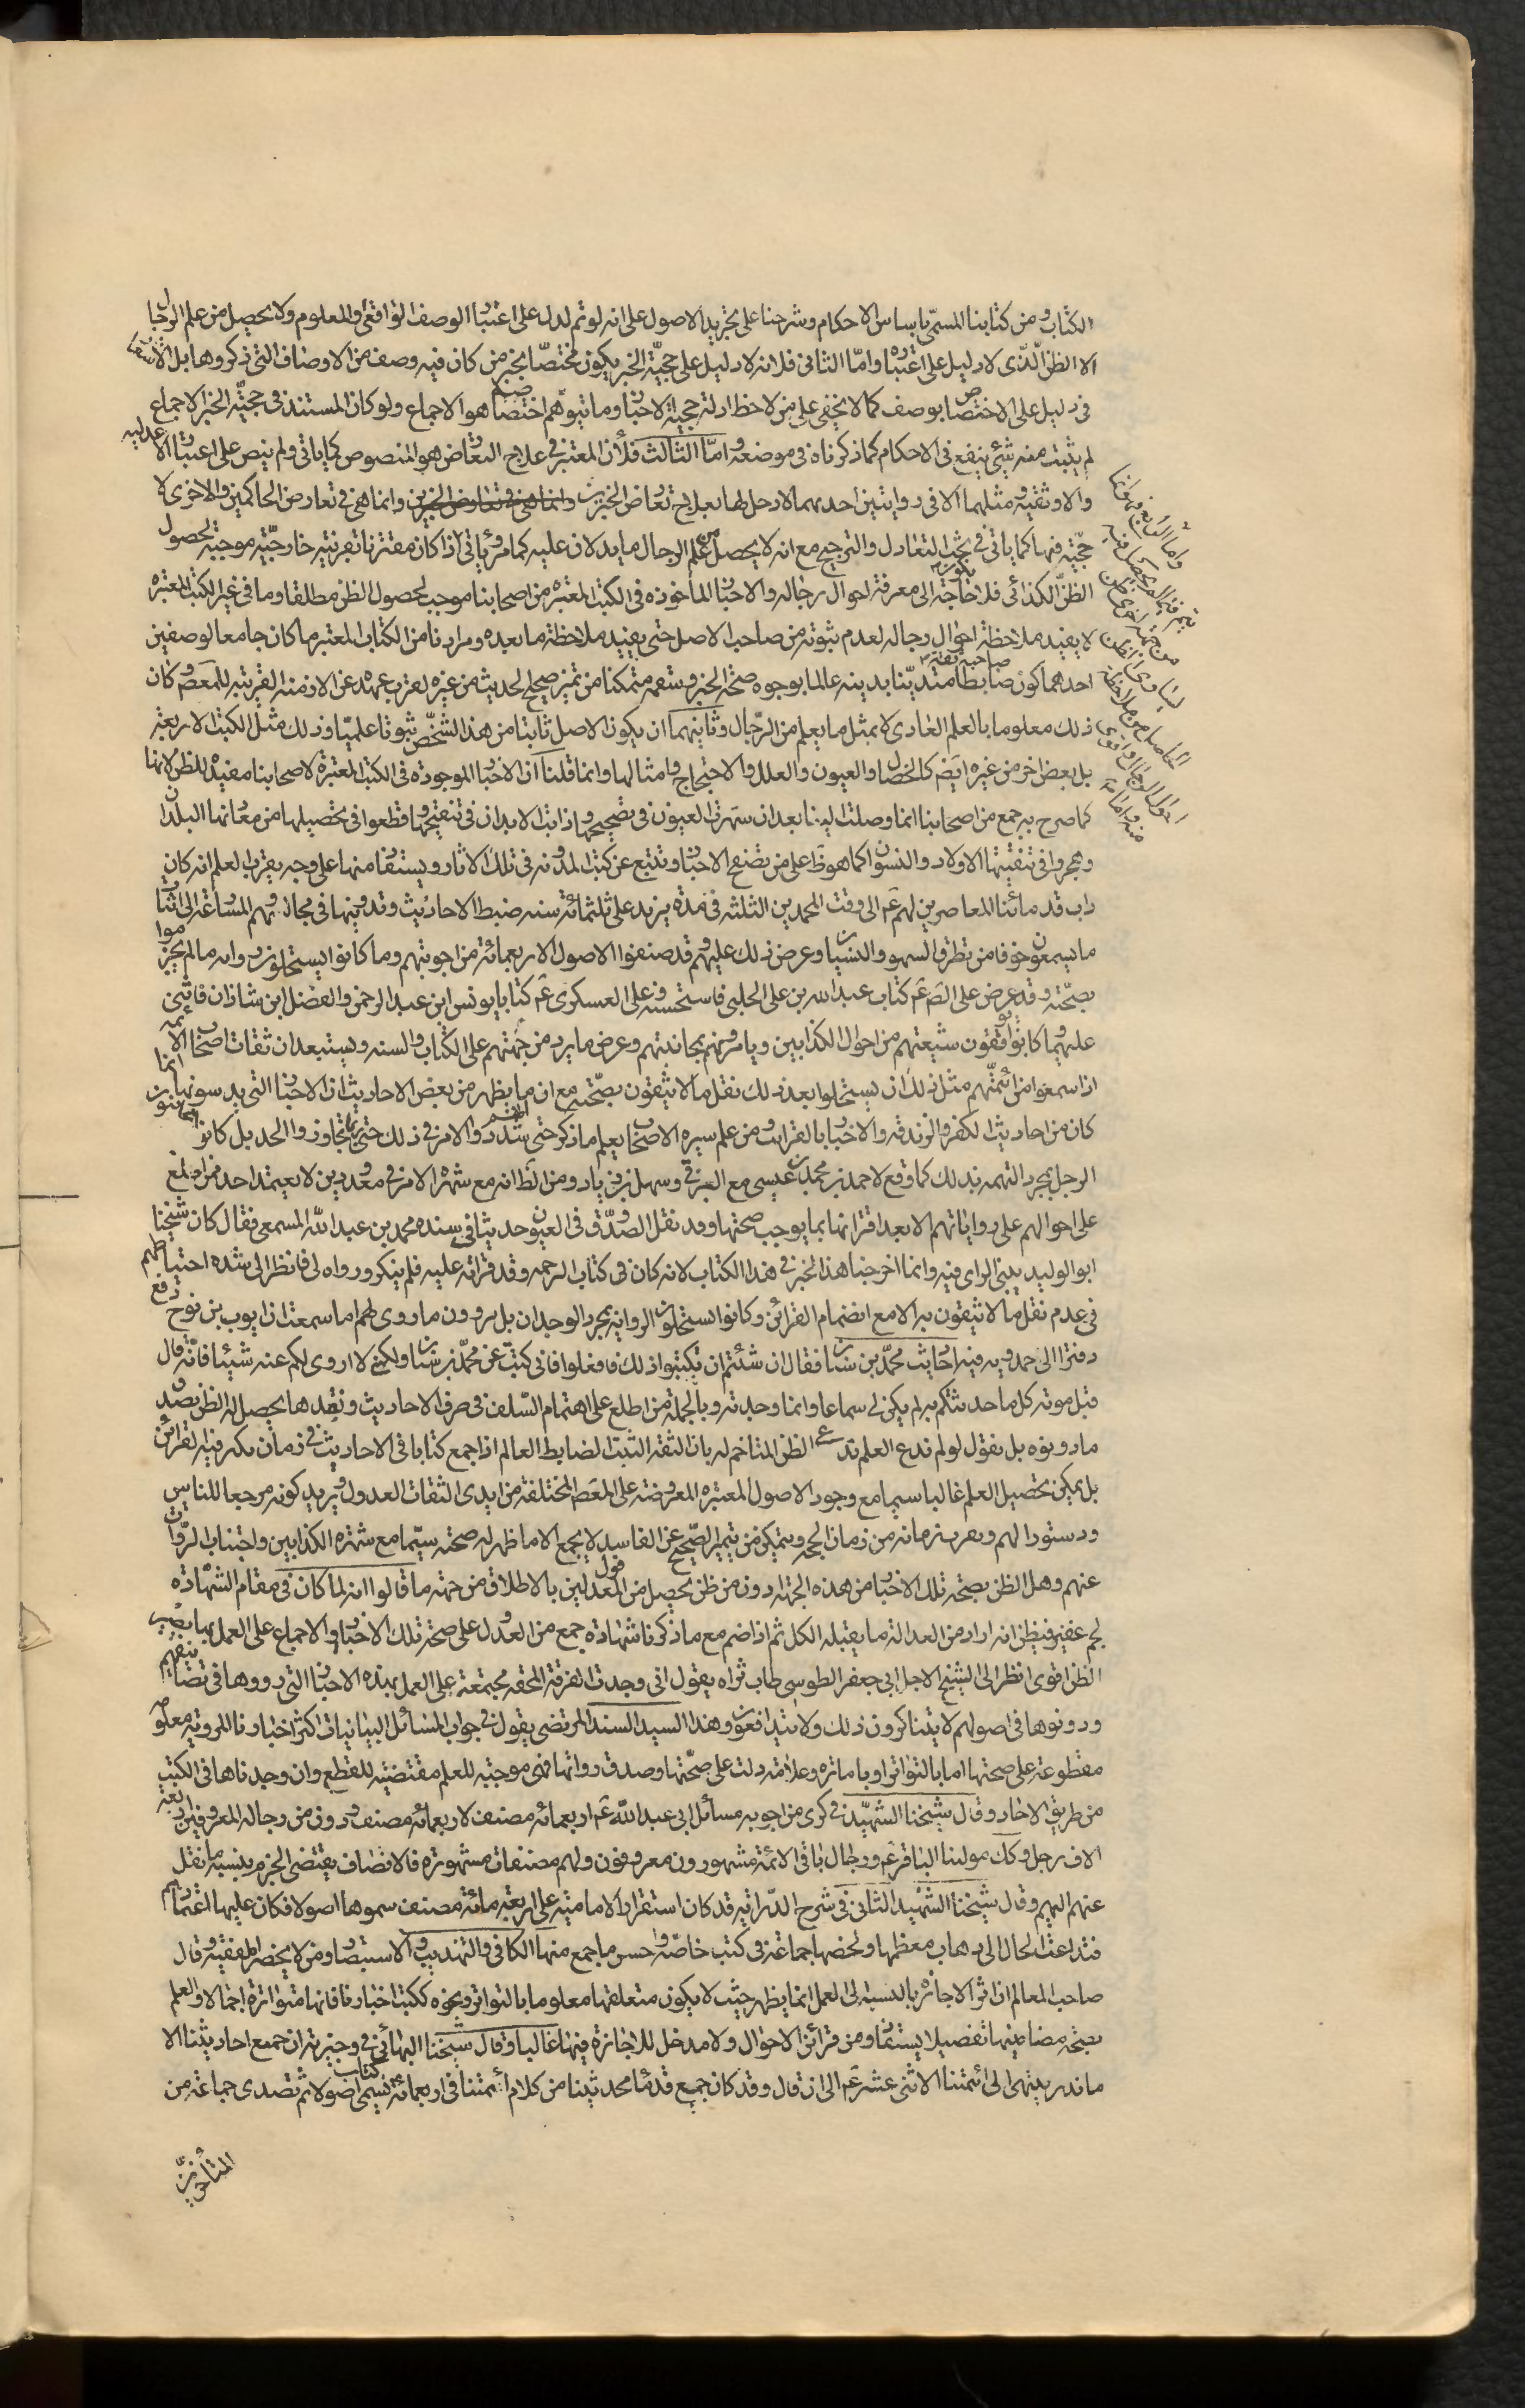 الكتاب ومن كتابنا المسمّى باساس الاحكام وشرحنا على تجريد الاصول على انه لو تم لدل على اعتبار الوصف الواقعى والمعلوم ولا يحصل من علم الرجال
الا الظن الّذى لا دليل على اعتباره وامّا الثانى فلانه لا دليل على حجيّة الخبر يكون مختصّا بخبر من كان فيه وصف من الاوصاف التى ذكروها بل الا
فى دليل على الاختصاص بوصف كما لا يخفى على من لاحظ ادلة حجية الاخبار وما يتوهّم اختصاصه هو الاجماع ولو كان المستند فى حجيّة الخبر الاجماع
لم يثبت منه شيئ ينفع فى الاحكام كما ذكرناه فى موضعه وامّا الثالث فلأن المعتبر فى علاج التعارض هو المنصوص كما ياتى ولم ينص على اعتبار الاعدليه
والاوثقيه ومثلهما الا فى روايتين احديهما لا دخل لها بعلاج تعارض الخبرين وانما هى فى تعارض الخبرين وانما هى فى تعارض الحاكمين والاخرى لا
حجّيّه فيها كما ياتى فى بحث التعادل والترجيح مع انه لا يحصل من علم الرجال ما يدلان عليه كما مر وياتى اذا كان مقترنا بقرينه خارجيّه موجبه لحصول
الظنّ الكذائى فلا حاجة الى معرفة احوال رجاله والاخبار الماخوذه فى الكتب المعتبره من اصحابنا موجب لحصول الظن مطلقا وما فى غير الكتب المعتبره
لا يفيد ملاحظة احوال رجاله لعدم ثبوته من صاحب الاصل حتى يفيد ملاحظة ما بعده ومرادنا من الكتاب المعتبر ما كان جامعا لوصفين
احدهما كون صاحبه ثقة ضابطا متديّنا بدينه عالما بوجوه صحّة الخبر وسقمه متمكنا من تميز صحيح الحديث من غيره لقرب عهده عن الازمنه القريبه للمعصوم وكان
ذلك معلوما بالعلم العادى لا بمثل ما يعلم من الرّجال وثانيهما ان يكون الاصل ثابتا من هذا الشخص ثبوتا علميّا وذلك مثل الكتب الاربعه
بل بعض اخر من غيره ايضم كالخصال والعيون والعلل والاحتجاج وامثالها وانما قلنا ان الاخبار الموجوده فى الكتب المعتبرة لاصحابنا مفيده للظن لانها
كما صرح به جمع من اصحابنا انما وصلت الينا بعد ان سهرت العيون فى تصحيحها وذابت الابدان فى تنقيحها وقطعوا فى تحصيلها من معادنها البلدان
وهجروا فى تنقيتها الاولاد والنسوان كما هو ظ على من تصفح الاخبار وتتبع عن كتب المدونه فى تلك الاثار ويستفاد منها على وجه يقرب العلم انه كان
داب قدمائنا المعاصرين لهم ع الى وقت المحمدين الثلثه فى مدة يزيد على ثلثمائه سنه ضبط الاحاديث وتدوينها فى مجالسهم والمسارعة الى اثبات
ما يسمعون خوفا من تطرق السهو والنسيان وعرض ذلك عليهم وقد صنفوا الاصول الاربعمائه من اجوبتهم وما كانوا يستحلون رواية ما لم يجزموا
بصحّته وقد عرض على الصم ع كتاب عبد الله بن على الحلبى فاستحسنه وعلى العسكرى ع كتابا يونس ابن عبد الرحمن والفضل ابن شاذان فاثنى
عليهما وكانوا يوقفون شيعتهم من احوال الكذابين ويامرونهم بمجانبتهم وعرض ما يرد من جهتهم على الكتاب والسنه ويستبعد ان ثقات اصحاب الائمه
اذا سمعوا من ائمتهم مثل ذلك ان يستحلوا بعد ذلك نقل ما لا يثقون بصحّته مع ان ما يظهر من بعض الاحاديث ان الاخبار التى يدسونها انما
كان من احاديث الكفر والزندقه والاخبار بالغرايب ومن علم سيره الاصحاب يعلم ما ذكر حتى شددوا الامر فى ذلك حتى ربما تجاوزوا الحد بل كانوا يتهمون
الرجل بمجرد التهمه بذلك كما وقع لاحمد بن محمد بن عيسى مع البرقى وسهل بن زياد ومن الظ انه مع شهرة الامر فى معدودين لا يعتمد احد من اطلع
على احوالهم على رواياتهم الا بعد اقترانها بما يوجب صحتها وقد نقل الصدّوق فى العيون حديثا فى سنده محمد بن عبد الله المسمعى فقال كان شيخنا
ابو الوليد سيئ الراى فيه وانما اخرجنا هذا الخبر فى هذا الكتاب لانه كان فى كتاب الرحمه وقد قراته عليه فلم ينكره ورواه لى فانظر الى شده احتياطهم
فى عدم نقل ما لا يثقون به الا مع انضمام القرائن وكانوا لا يستحلون الروايه بمجرد الوجدان بل يردون ما روى لهم اما سمعت ان ايوب بن نوح دفع
دفترا الى حمدويه فيه احاديث محمّد بن سنان فقال ان شئتم ان تكتبوا ذلك فافعلوا فانى كتبت عن محمّد بن سنان ولكن لا اروى لكم عنه شيئا فانّه قال
قبل موته كل ما حدثتكم به لم يكن لى سماعا وانما وجدته وبالجملة من اطلع على اهتمام السّلف فى صرف الاحاديث ونقدها يحصل له الظن بصدق
ما رووه بل نقول لو لم ندع العلم ندعى الظن المتاخم له بان الثقة الثبت الضابط العالم اذا جمع كتابا فى الاحاديث فى زمان يكثر فيه القرائن
بل يمكن تحصيل العلم غالبا سيما مع وجود الاصول المعتبره المعروضه على المعصوم المختلفة من ايدى الثقات العدول ويريد كونه مرجعا للناس
ودستورا لهم وبقرب زمانه من زمان الحجج ويتمكن من تميز الصّحيح عن الفاسد لا يجمع الا ما ظهر له صحته سيّما مع شهره الكذابين واجتناب الرّوات
عنهم وهل الظن بصحّه تلك الاخبار من هذه الجهة ادون من ظن يحصل من قول المعدلين بالاطلاق من جهة ما قالوا انه لما كان فى مقام الشهاده
لجم غفير فيظن انه اراد من العدالة ما يقبله الكل ثم اذا ضم مع ما ذكرنا شهادة جمع من العدول على صحّة تلك الاخبار والاجماع على العمل بها يصير
الظن اقوى انظر الى الشيخ الاجل ابى جعفر الطوسى طاب ثراه يقول انى وجدت الفرقة المحقه مجتمعة على العمل بهذه الاخبار التى رووها فى تصانيفهم
ودونوها فى اصولهم لا يتناكرون ذلك ولا يتدافعون وهذا السيد السند المرتضى يقول فى جواب المسائل التبانيات اكثر اخبارنا المرويّه معلومه
مقطوعة على صحتها اما بالتواتر او باماره وعلامه دلت على صحّتها وصدق رواتها فهى موجبه للعلم مقتضيه للقطع وان وجدناها فى الكتب
من طريق الاحاد وقال شيخنا الشهيد فى كرى من اجوبه مسائل ابى عبد الله ع اربعمائه مصنف لاربعمائه مصنف ودون من رجاله المعروفين اربعة
الاف رجل وكك مولينا الباقر ع ورجال باقى الائمة مشهورون معروفون ولهم مصنفات مشهورة فالانصاف يقتضى الجزم بنسبة ما نقل
عنهم اليهم وقال شيخنا الشّهيد الثانى فى شرح الدّرايه قد كان استقرار الاماميّه على اربعة مائة مصنف سموها اصولا فكان عليها اعتمادهم
فتداعت الحال الى ذهاب معظمها ولخصها جماعة فى كتب خاصّه واحسن ما جمع منها الكافى والتهذيب والاستبصار ومن لا يحضره الفقيه وقال
صاحب المعالم ان اثر الاجازة بالنسبه الى العمل انما يظهر حيث لا يكون متعلقها معلوما بالتواتر ونحوه ككتب اخبارنا فانها متواترة اجمالا والعلم
بصحّه مضامينها تفصيلا يستفاد من قرائن الاحوال ولا مدخل للاجازة فيها غالبا وقال شيخنا البهائى فى وجيزته ان جميع احاديثنا الا
ما ندر ينتهى الى ائمتنا الاثنى عشر ع الى ان قال وقد كان جمع قدماء محدثينا من كلام ائمتنا فى اربعمائه كتاب تسمى اصولا ثم تصدى جماعة من
المتأخرين